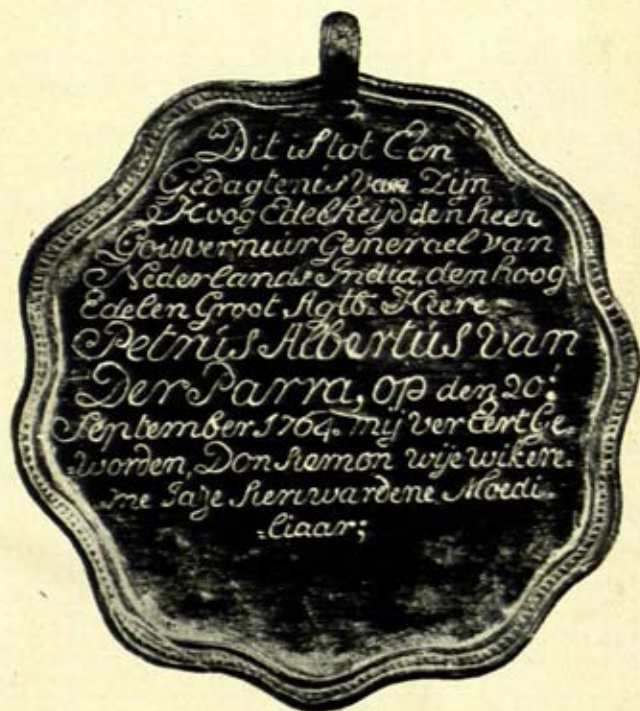 Dit is tot Een
Gedagtenis Van Zijn
Hoog Edelheijd den heer
Gouverneur Generael van
Nederlands India, den hoog
Edelen Groot Agtb. Heere
Petrus Albertus van
Der Parra, op den 20:
September 1764. mij ver Eert Ge-
worden, Don Siemon wije wikere-
me Jaje Sieriwardene Moedi-
-liaar;